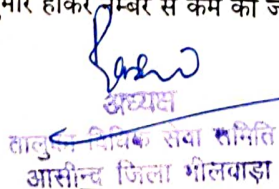 होकर नम्बर से कम का
अध्यक्ष
तालुका विधिक सेवा समिति
आसीन्द जिला भीलवाड़ा